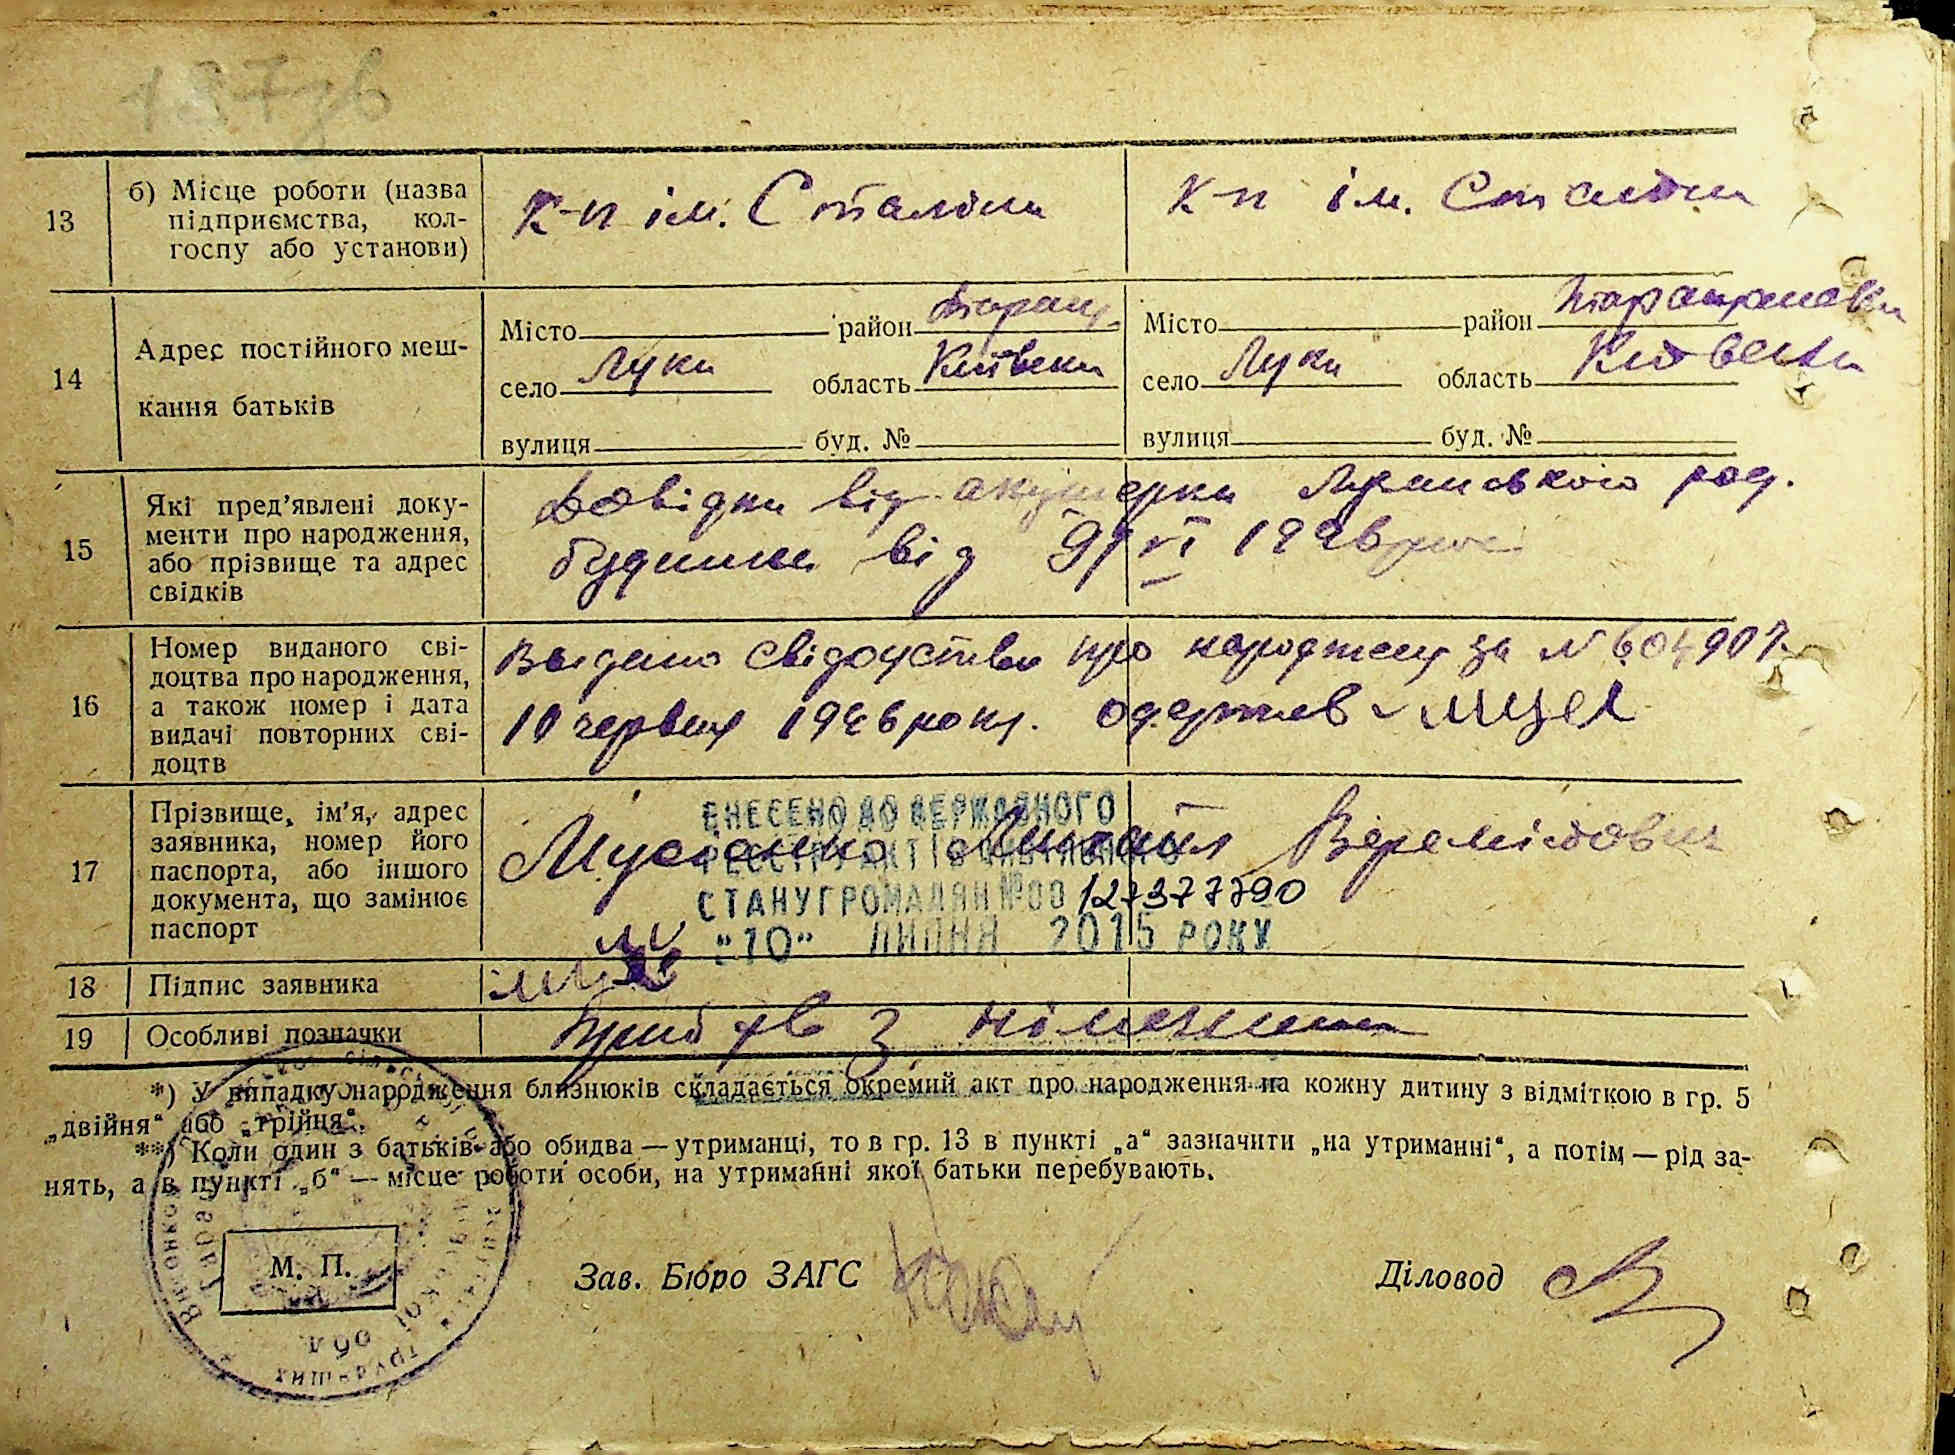 13
б) Місце роботи (назва
підприємства, кол-
госпу або установи)
К-п ім. Сталіна
К-п ім. Сталіна
14
Адрес постійного меш-
кання батьків
Місто район Таращ.
село Лука область Київська
вулиця буд. №
Місто район Таращанськи
село Лука область Київська
вулиця буд. №
15
Які пред’явлені доку-
менти про народження,
або прізвище та адрес
свідків
Довідка від акушерки Луканського род.
будинка від VI 1946 року
16
Номер виданого сві-
доцтва про народження,
а також номер і дата
видачі повторних сві-
доцтв
Видано свідоцтво про народжену за №
10 червня 1946 року. одержав
17
Прізвище, ім’я, адрес
заявника, номер його
паспорта, або іншого
документа, що замінює
паспорт
Михайл
ВНЕСЕНО ДО ДЕРЖАВНОГО
РЕЄСТРУ АКТІВ ЦИВІЛЬНОГО
СТАНУ ГРОМАДЯН №00 127377790
"10" ЛИПНЯ 2015 РОКУ
18
Підпис заявника
19
Особливі позначки
з
*) У випадку народження близнюків складається окремий акт про народження на кожну дитину з відміткою в гр. 5
„двійня“ або „трійня“.
**) Коли один з батьків або обидва — утриманці, то в гр. 13 в пункті „а“ зазначити „на утриманні“, а потім — рід за-
нять, а в пункті „б“ — місце роботи особи, на утриманні якої батьки перебувають.
М. П.
Зав. Бюро ЗАГС
Діловод